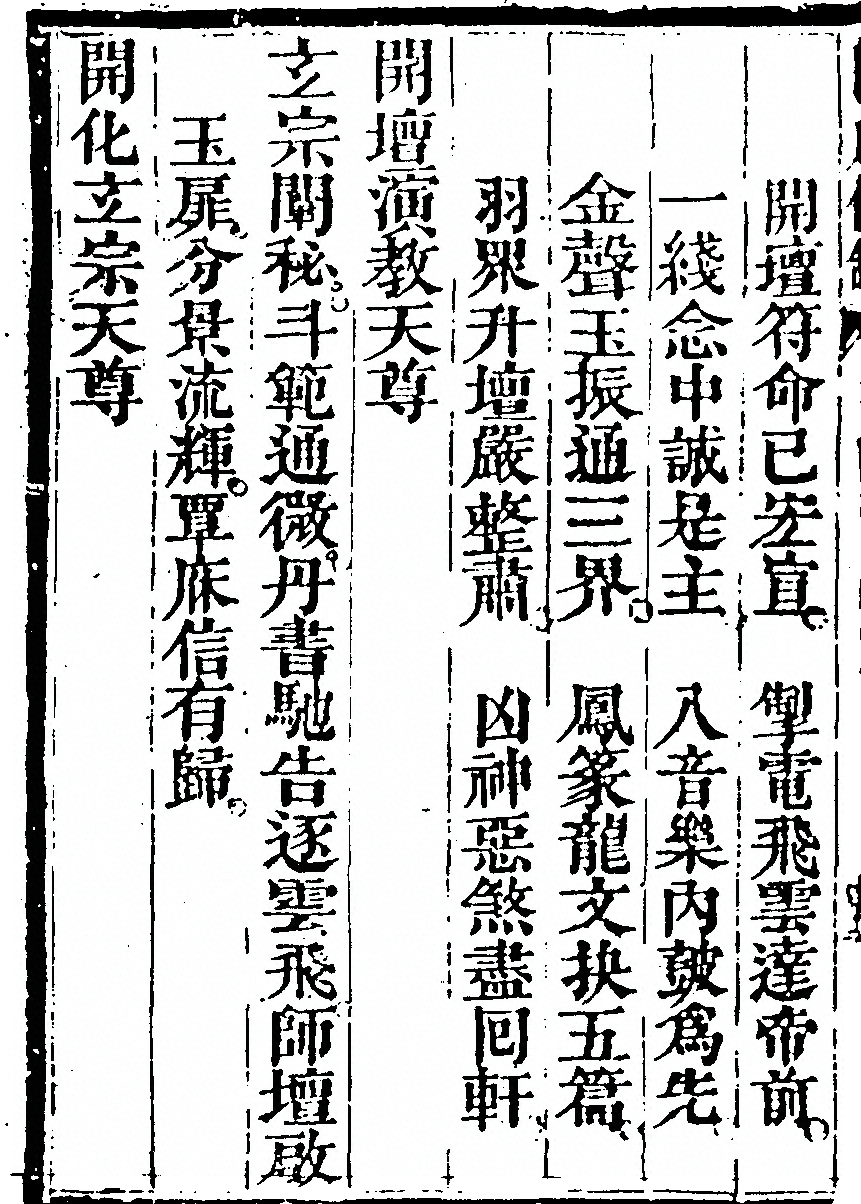 開壇符命已宏宣。 掣電飛雲達帝前。
一綫念中誠是主 八音樂內鼓爲先
金聲玉振通三界。 鳳篆龍文抉五篇。
羽眾升壇嚴整肅。 凶神惡煞盡回軒。
開壇演教天尊
立宗闡秘。斗範通微。丹書馳告逐雲飛師壇啟
玉扉。分景流輝。覃庥信有歸。
開化立宗天尊